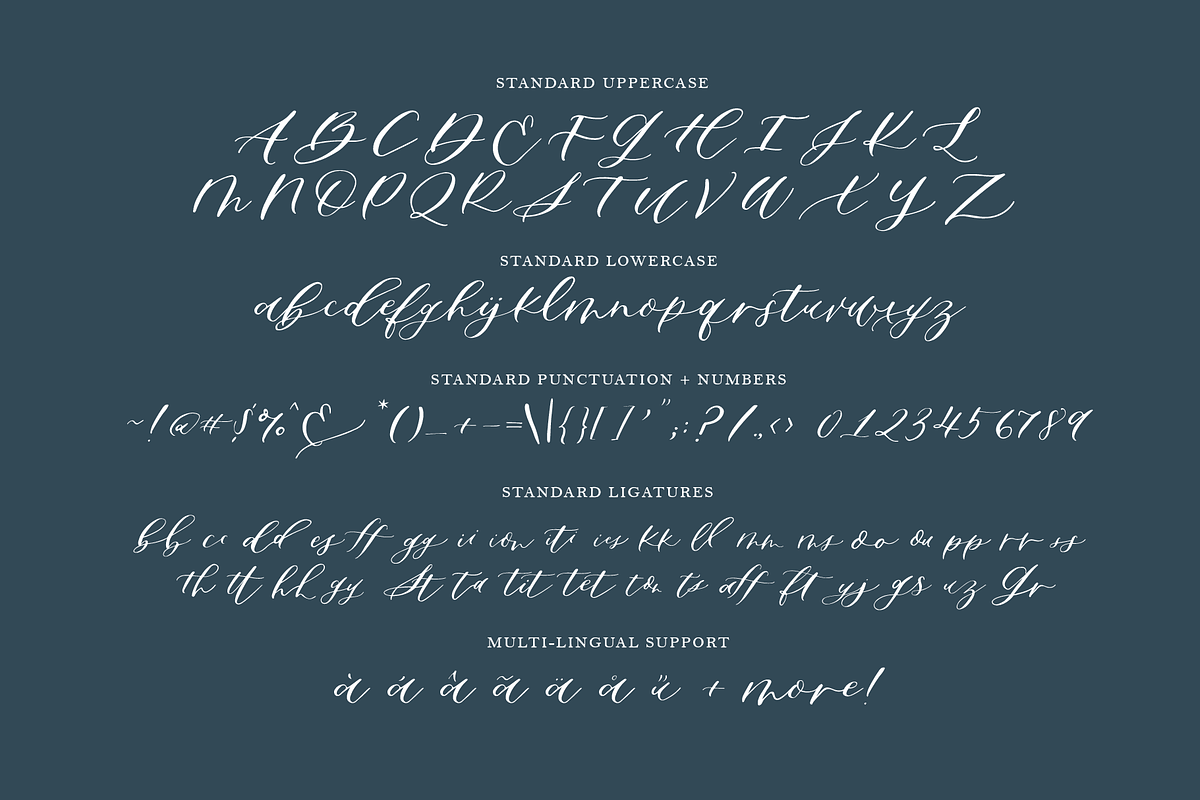 STANDARD UPPERCASE
A B C D E F G H I J K L
M N O P Q R S T U V W X Y Z
STANDARD LOWERCASE
abcdefghijklmnopqrstuvwxyz
STANDARD PUNCTUATION + NUMBERS
~!@#$%^& *()_+-=\|{}[]'";:?/.,<> 0123456789
STANDARD LIGATURES
bb cc dd es ff gg ii ion iti ies kk ll mm ms oo ou pp rr ss
th tt hh gy St ta tit tet ton ts aff ft yj gs uz Gr
MULTI-LINGUAL SUPPORT
à á â ã ä å ű + more!